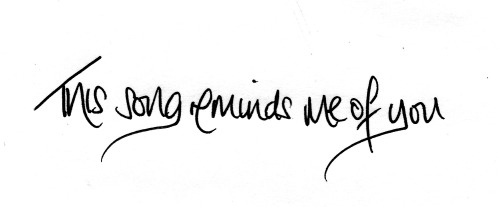 This song reminds me of you